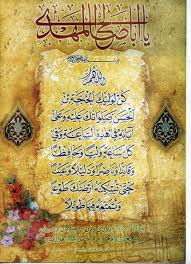 يا أباصالح المهدى
اللهم
كن لوليك الحجة بن
الحسن صلواتك عليه وعلى
آبائه في هذه الساعة وفي
كل ساعة وليا وحافظا
وقائدا وناصرا ودليلا وعينا
حتى تسكنه أرضك طوعا
وتمتعه فيها طويلا